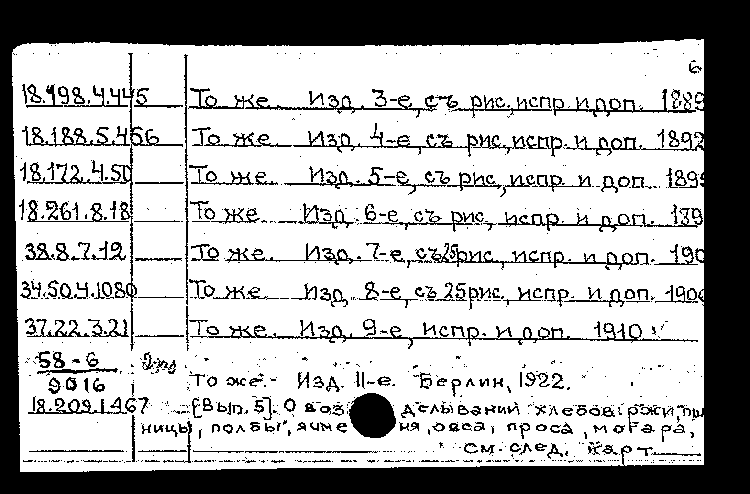 6
18.198.4.445 То же. Изд. 3-е, съ рис., испр. и доп. 1889
18.188.5.456 То же. Изд. 4-е, съ рис., испр. и доп. 1892
18.172.4.50 То же. Изд. 5-е, съ рис., испр. и доп. 189
18.261.8.18 То же Изд. 6-е, съ рис, испр. и доп. 189
38.8.7.12 То же. Изд. 7-е, съ 25 рис., испр. и доп. 190
34.50.4.1080 То же. Изд. 8-е, съ 25 рис., испр. и доп. 190
37.22.3.21 То же. Изд. 9-е, испр. и доп. 1910
58-6
9016 То же.- Изд. 11-е. Берлин, 1922.
18.209.1.467 [Вып. 5]. О воз делывании хлебов: ржи, пше
ницы, полбы, ячме ня, овса, проса, могара,
см. след. карт